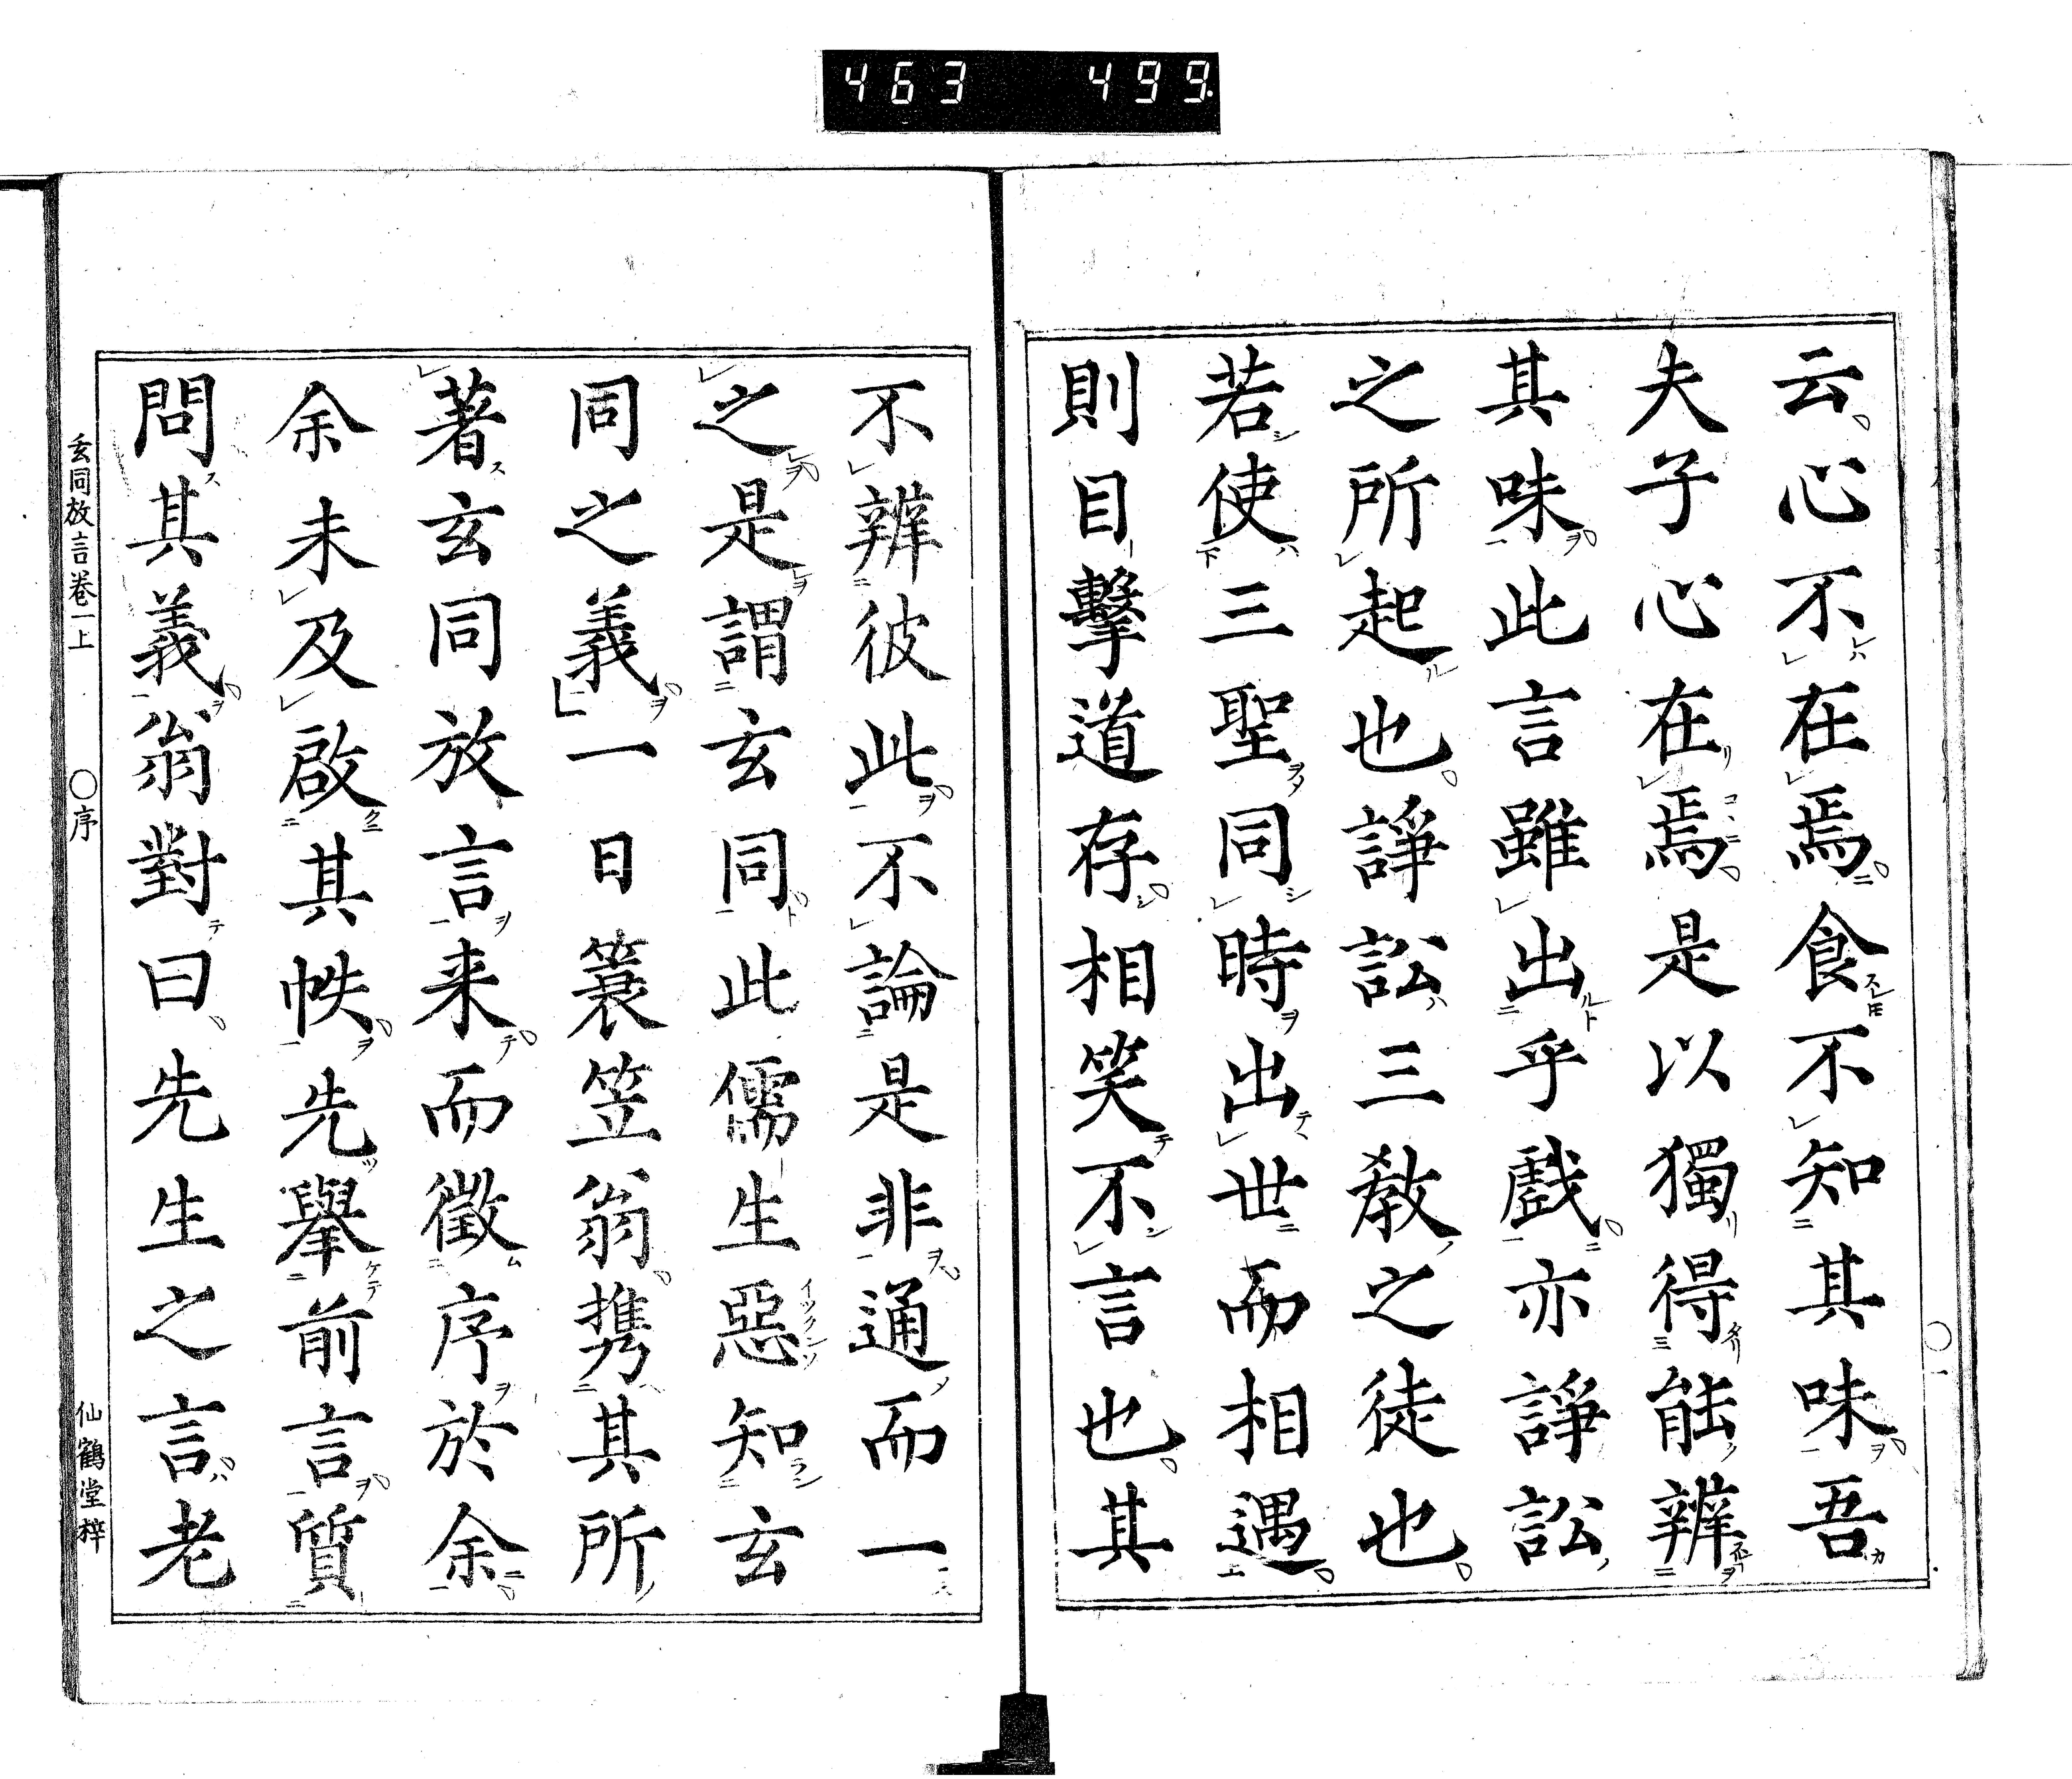 463 499.
云心不在焉食不知其味吾
夫子心在焉是以獨得能辨
其味此言雖出乎戲亦諍訟
之所起也諍訟三教之徒也
若使三聖同時出世而相遇
則目擊道存相笑不言也其
不辨彼此不論是非通而一
之是謂玄同此儒生惡知玄
同之義一日簑笠翁携其所
著玄同放言来而徵序於余
余未及啟其帙先擧前言質
問其義翁對曰先生之言老
玄同放言巻一上 〇序 仙鶴堂梓